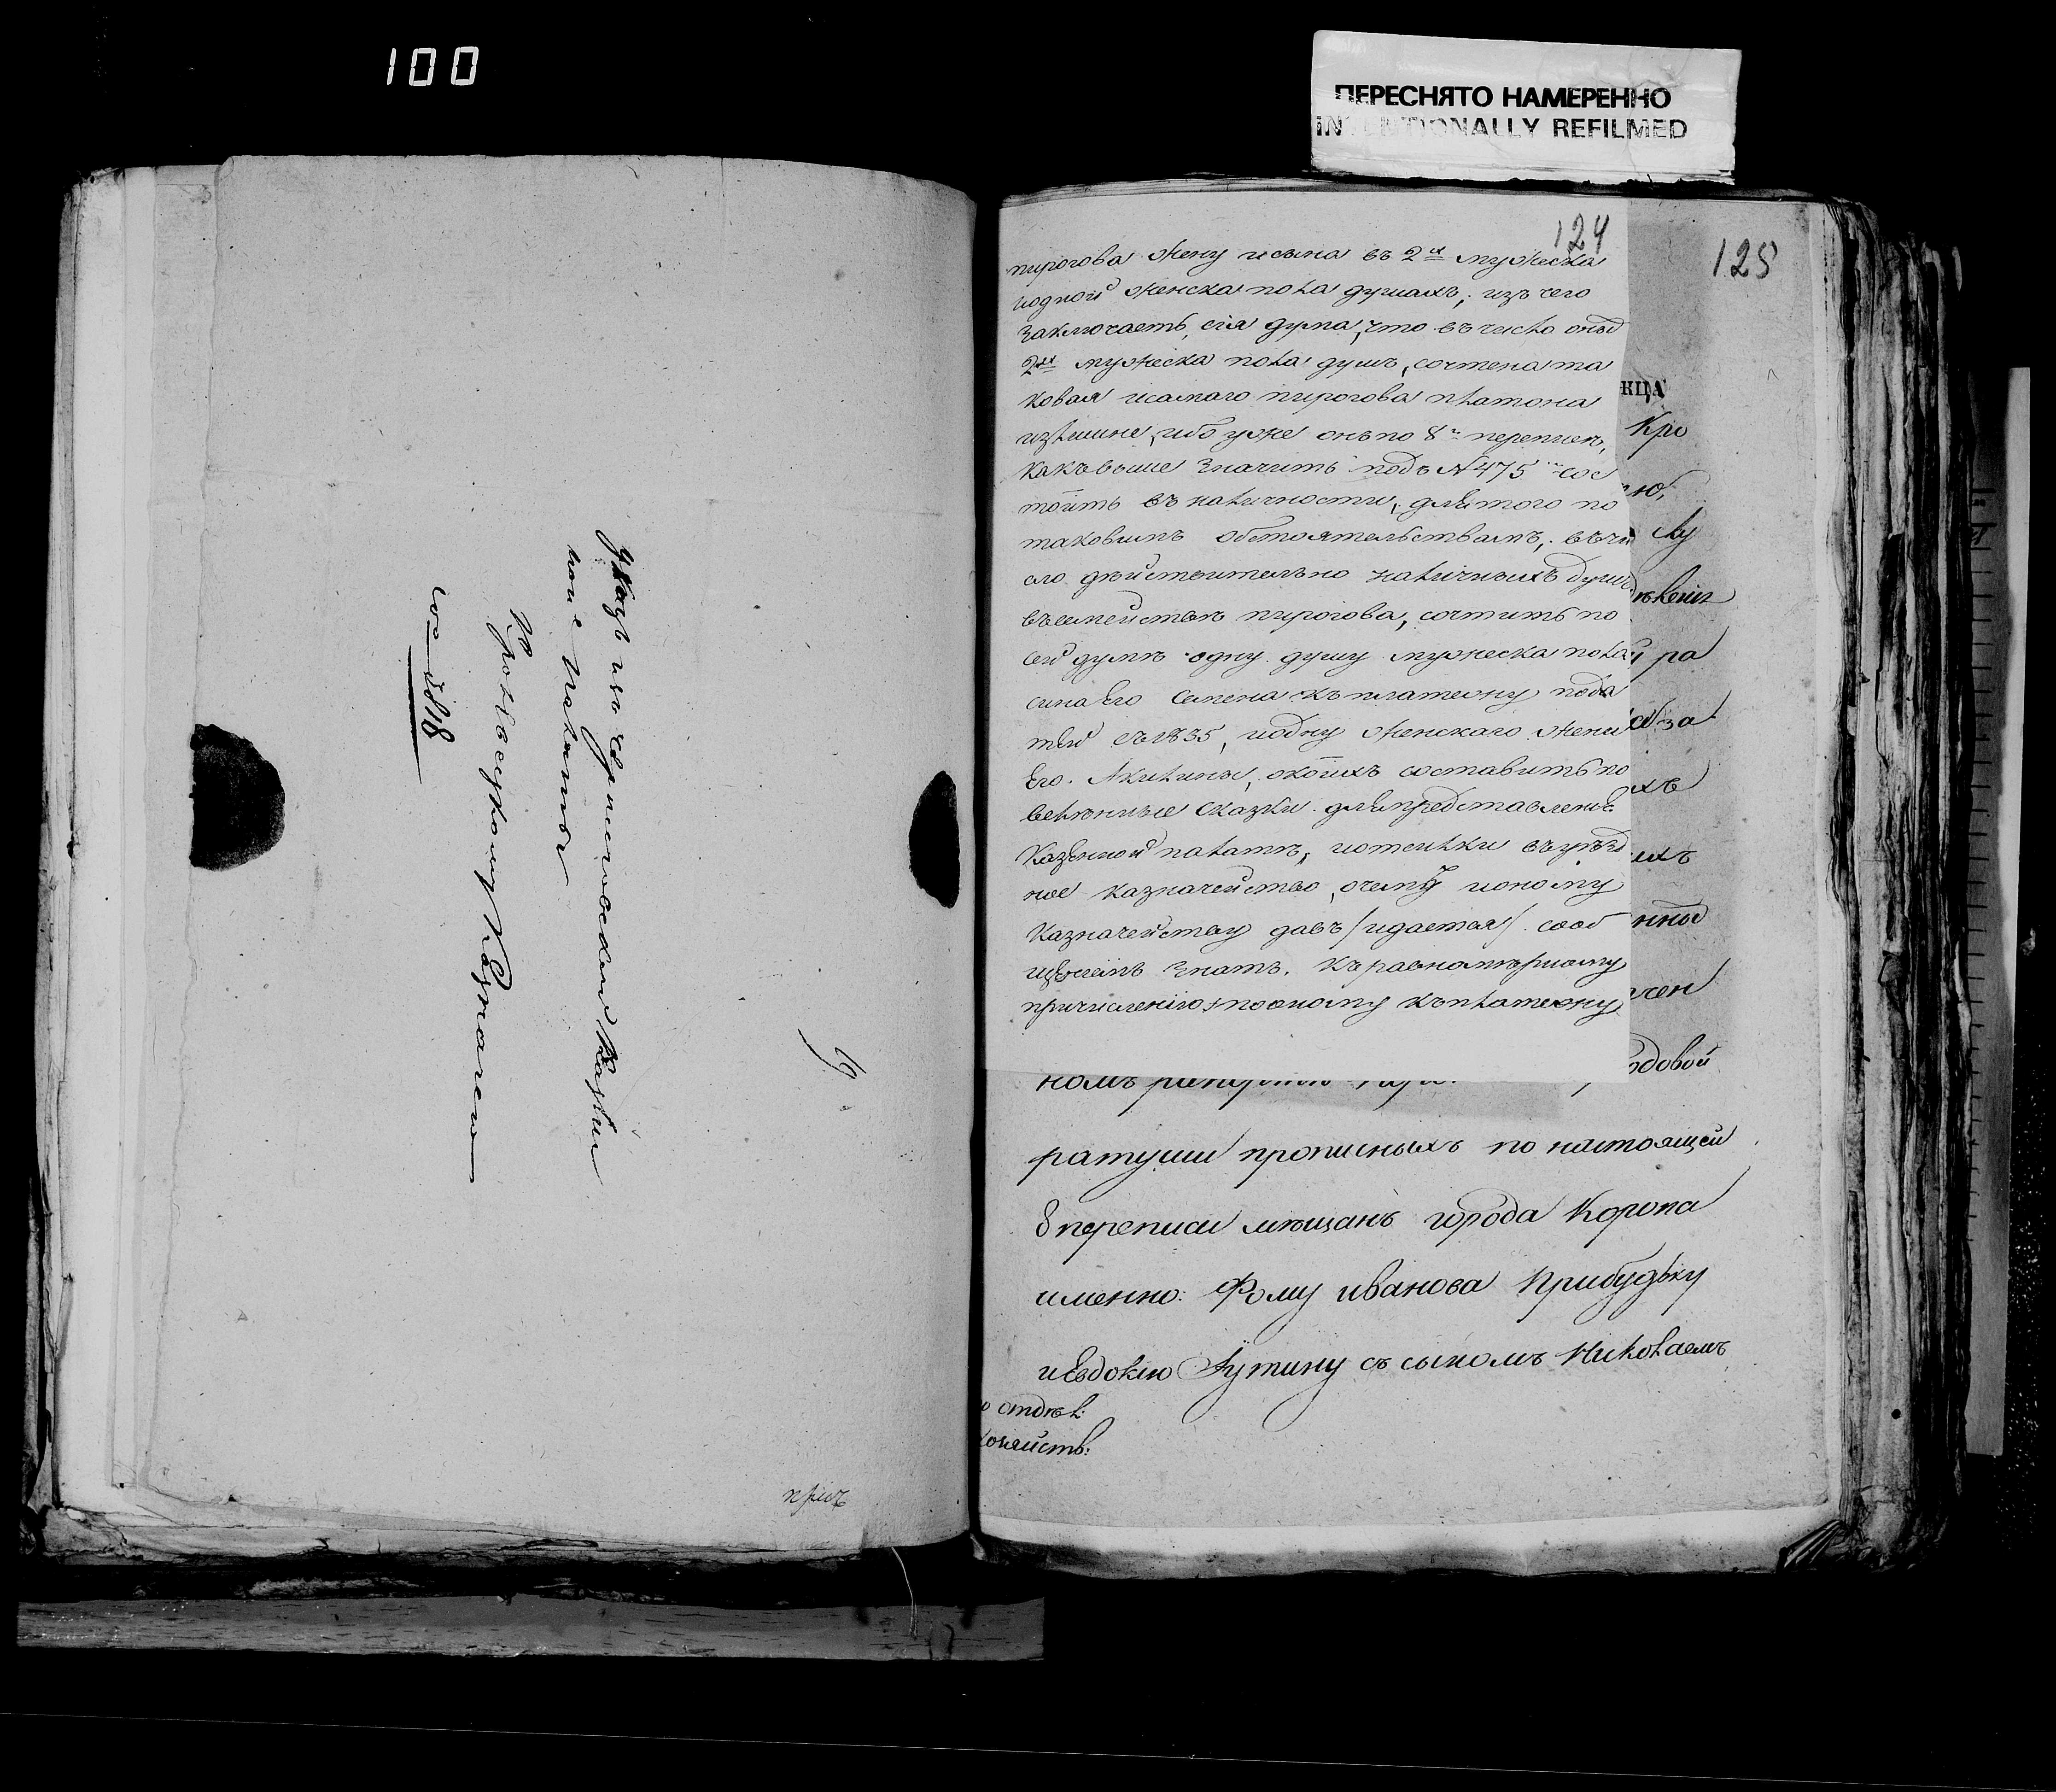 100
ПЕРЕСНЯТО НАМЕРЕННО
INTENTIONALLY REFILMED
Указъ изъ Черниговской Казен
ной Палаты
Кролевецкому Казначею
124
125
пирогова жену исына въ 2х мужеска
иодной женска пола душахъ, изъ чего
заключаетъ сія дума, что въ число оныхъ
2хъ мужеска пола душъ, сочтена та
ковая исамаго пирогова платона
излишне, ибо уже онъ по 8й переписи,
какъвыше значитъ подъ N 475м сос
тоитъ въ наличности, длятого по
таковымъ обстоятельствамъ, въчи
сло действительно наличныхъ душъ
въсемействѣ пирогова, сочтить по
сей думѣ одну душу мужеска пола
сина Его Семена къплатежу пода
тей съ1835, иодну женскаго жени
Его Акилины, окоихъ составить по
велѣнные сказки для представленія
Казенной палатѣ, иотсилки въуѣзд
ное казначейство, очемъ ионому
Казначейству давъ /идается/ сооб
щеніемъ знать. къравномѣрному
причисленію поономуу къплатежу
КЦА
Кро
лю,
Лу
ра
ихъ
чен
довой
ратуши прописныхъ по настоящей
8 переписи мещанъ города Коропа
именно: Фому иванова Прибудьку
и Евдокію Лутину съ сыномъ Николаемъ
о отдѣл:
хозяйств: